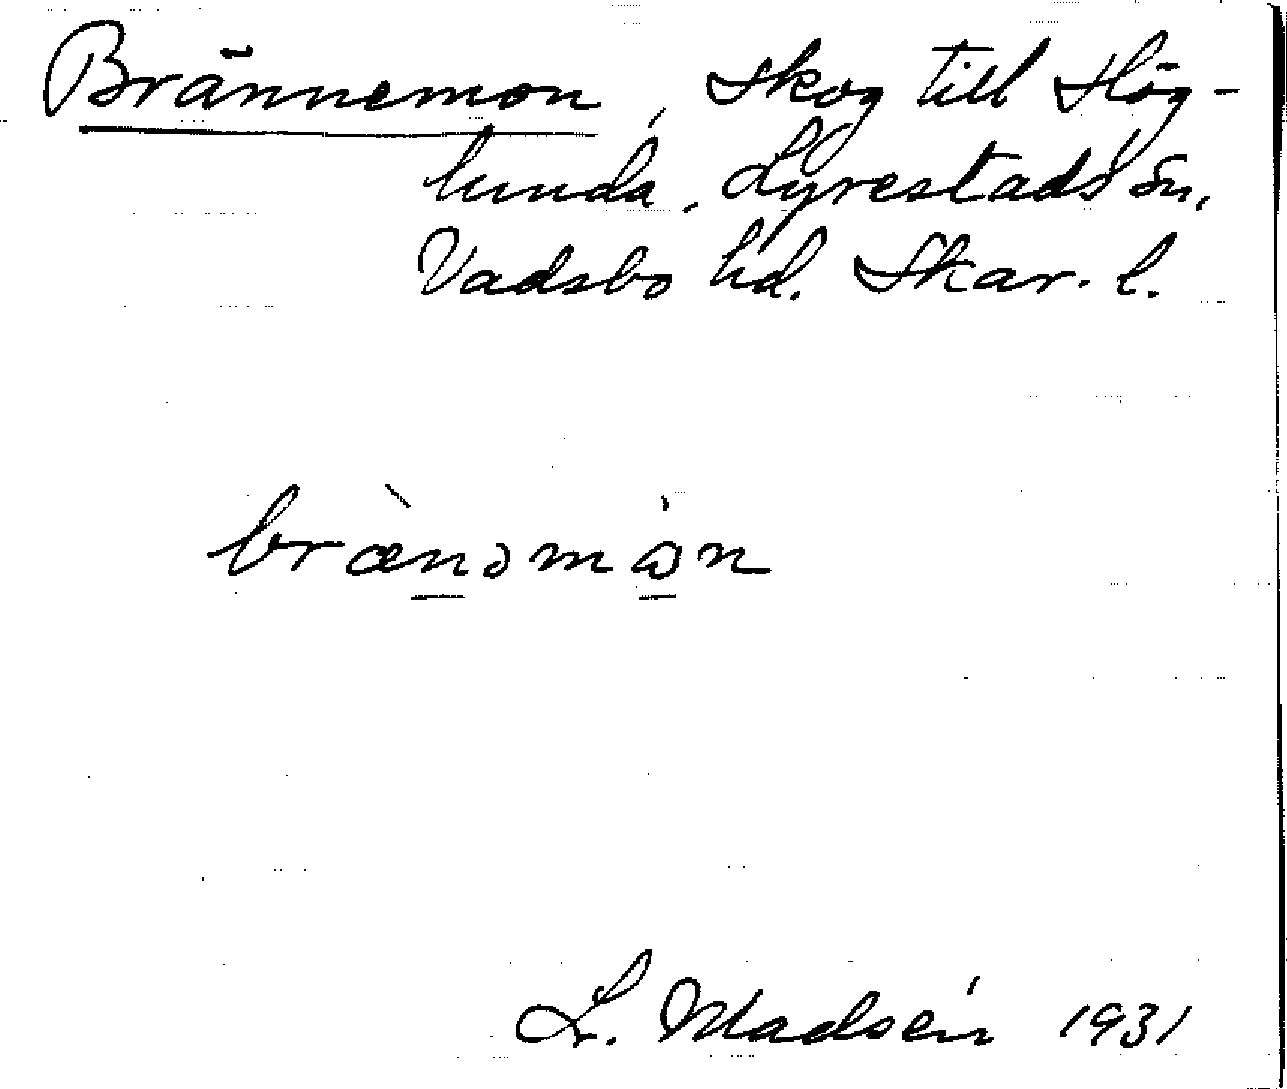 Brännemon, skog till Hög-
lunda, Lyrestads sn,
Vadsbo hd. Skar. l.
brænəmɷn
L. Madsén 1931